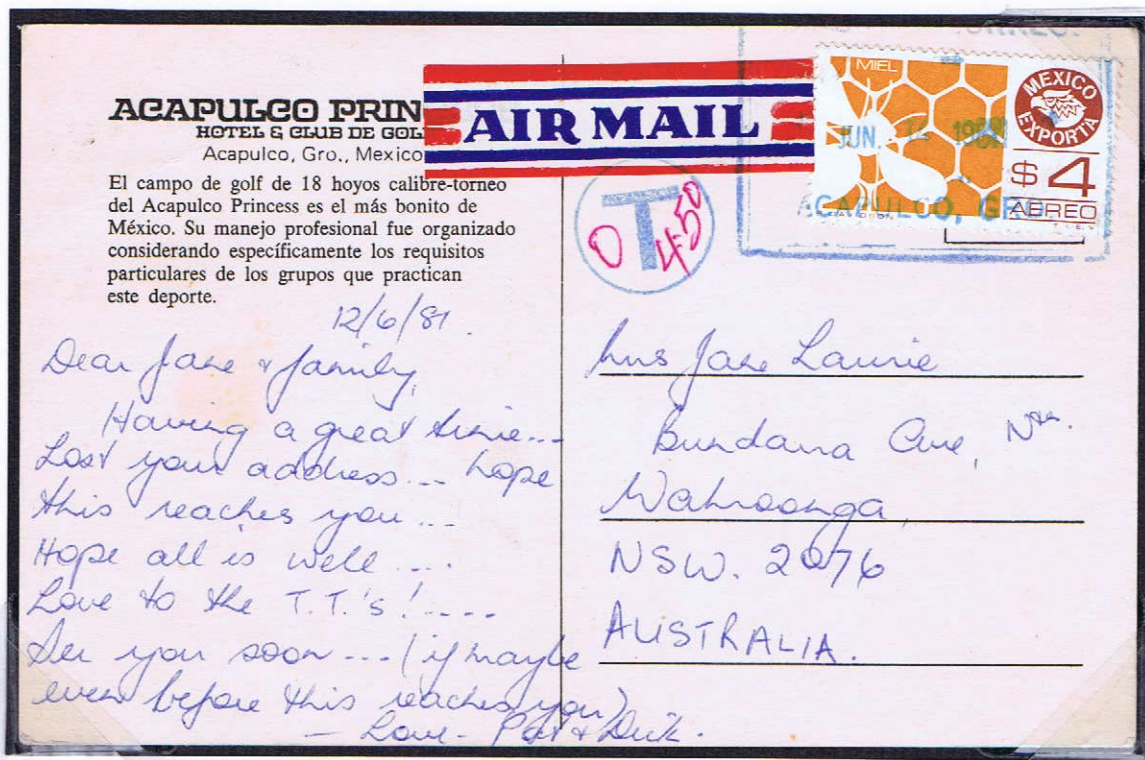 ACAPULCO PRIN
HOTEL & CLUB DE GOL
Acapulco, Gro., Mexico
El campo de golf de 18 hoyos calibre-torneo
del Acapulco Princess es el más bonito de
México. Su manejo profesional fue organizado
considerando específicamente los requisitos
particulares de los grupos que practican
este deporte.
12/6/81.
Dear Jane & family,
Having a great time...
Lost your address... hope
this reaches you...
Hope all is well ....
Love to the T.T.'s! ....
See you soon ... (if maybe
even before this reaches you)
- Love - Pat & Dick.
AIR MAIL
MIEL
MEXICO
EXPORTA
$4
AEREO
JUN.
ACAPULCO, GRO.
T
0 4.50
Mrs Jane Laurie
Bundana Ave, Nth.
Wahroonga,
NSW. 2076
AUSTRALIA.